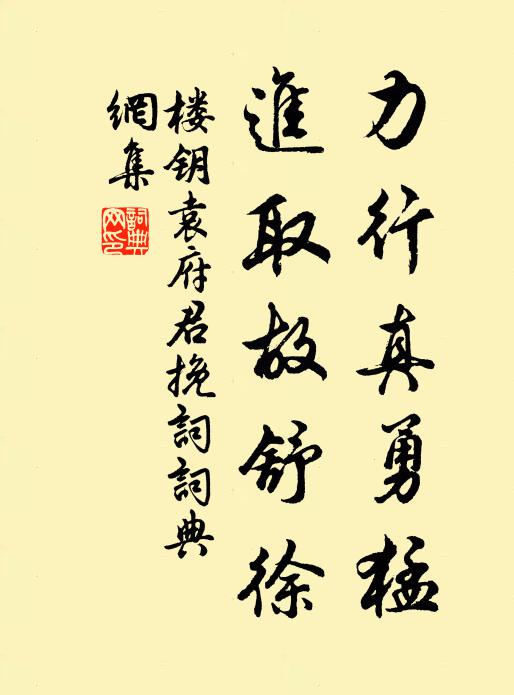 力行真勇猛
進取故舒徐
楼钥袁府君挽詞詞典
網集
詞典网印